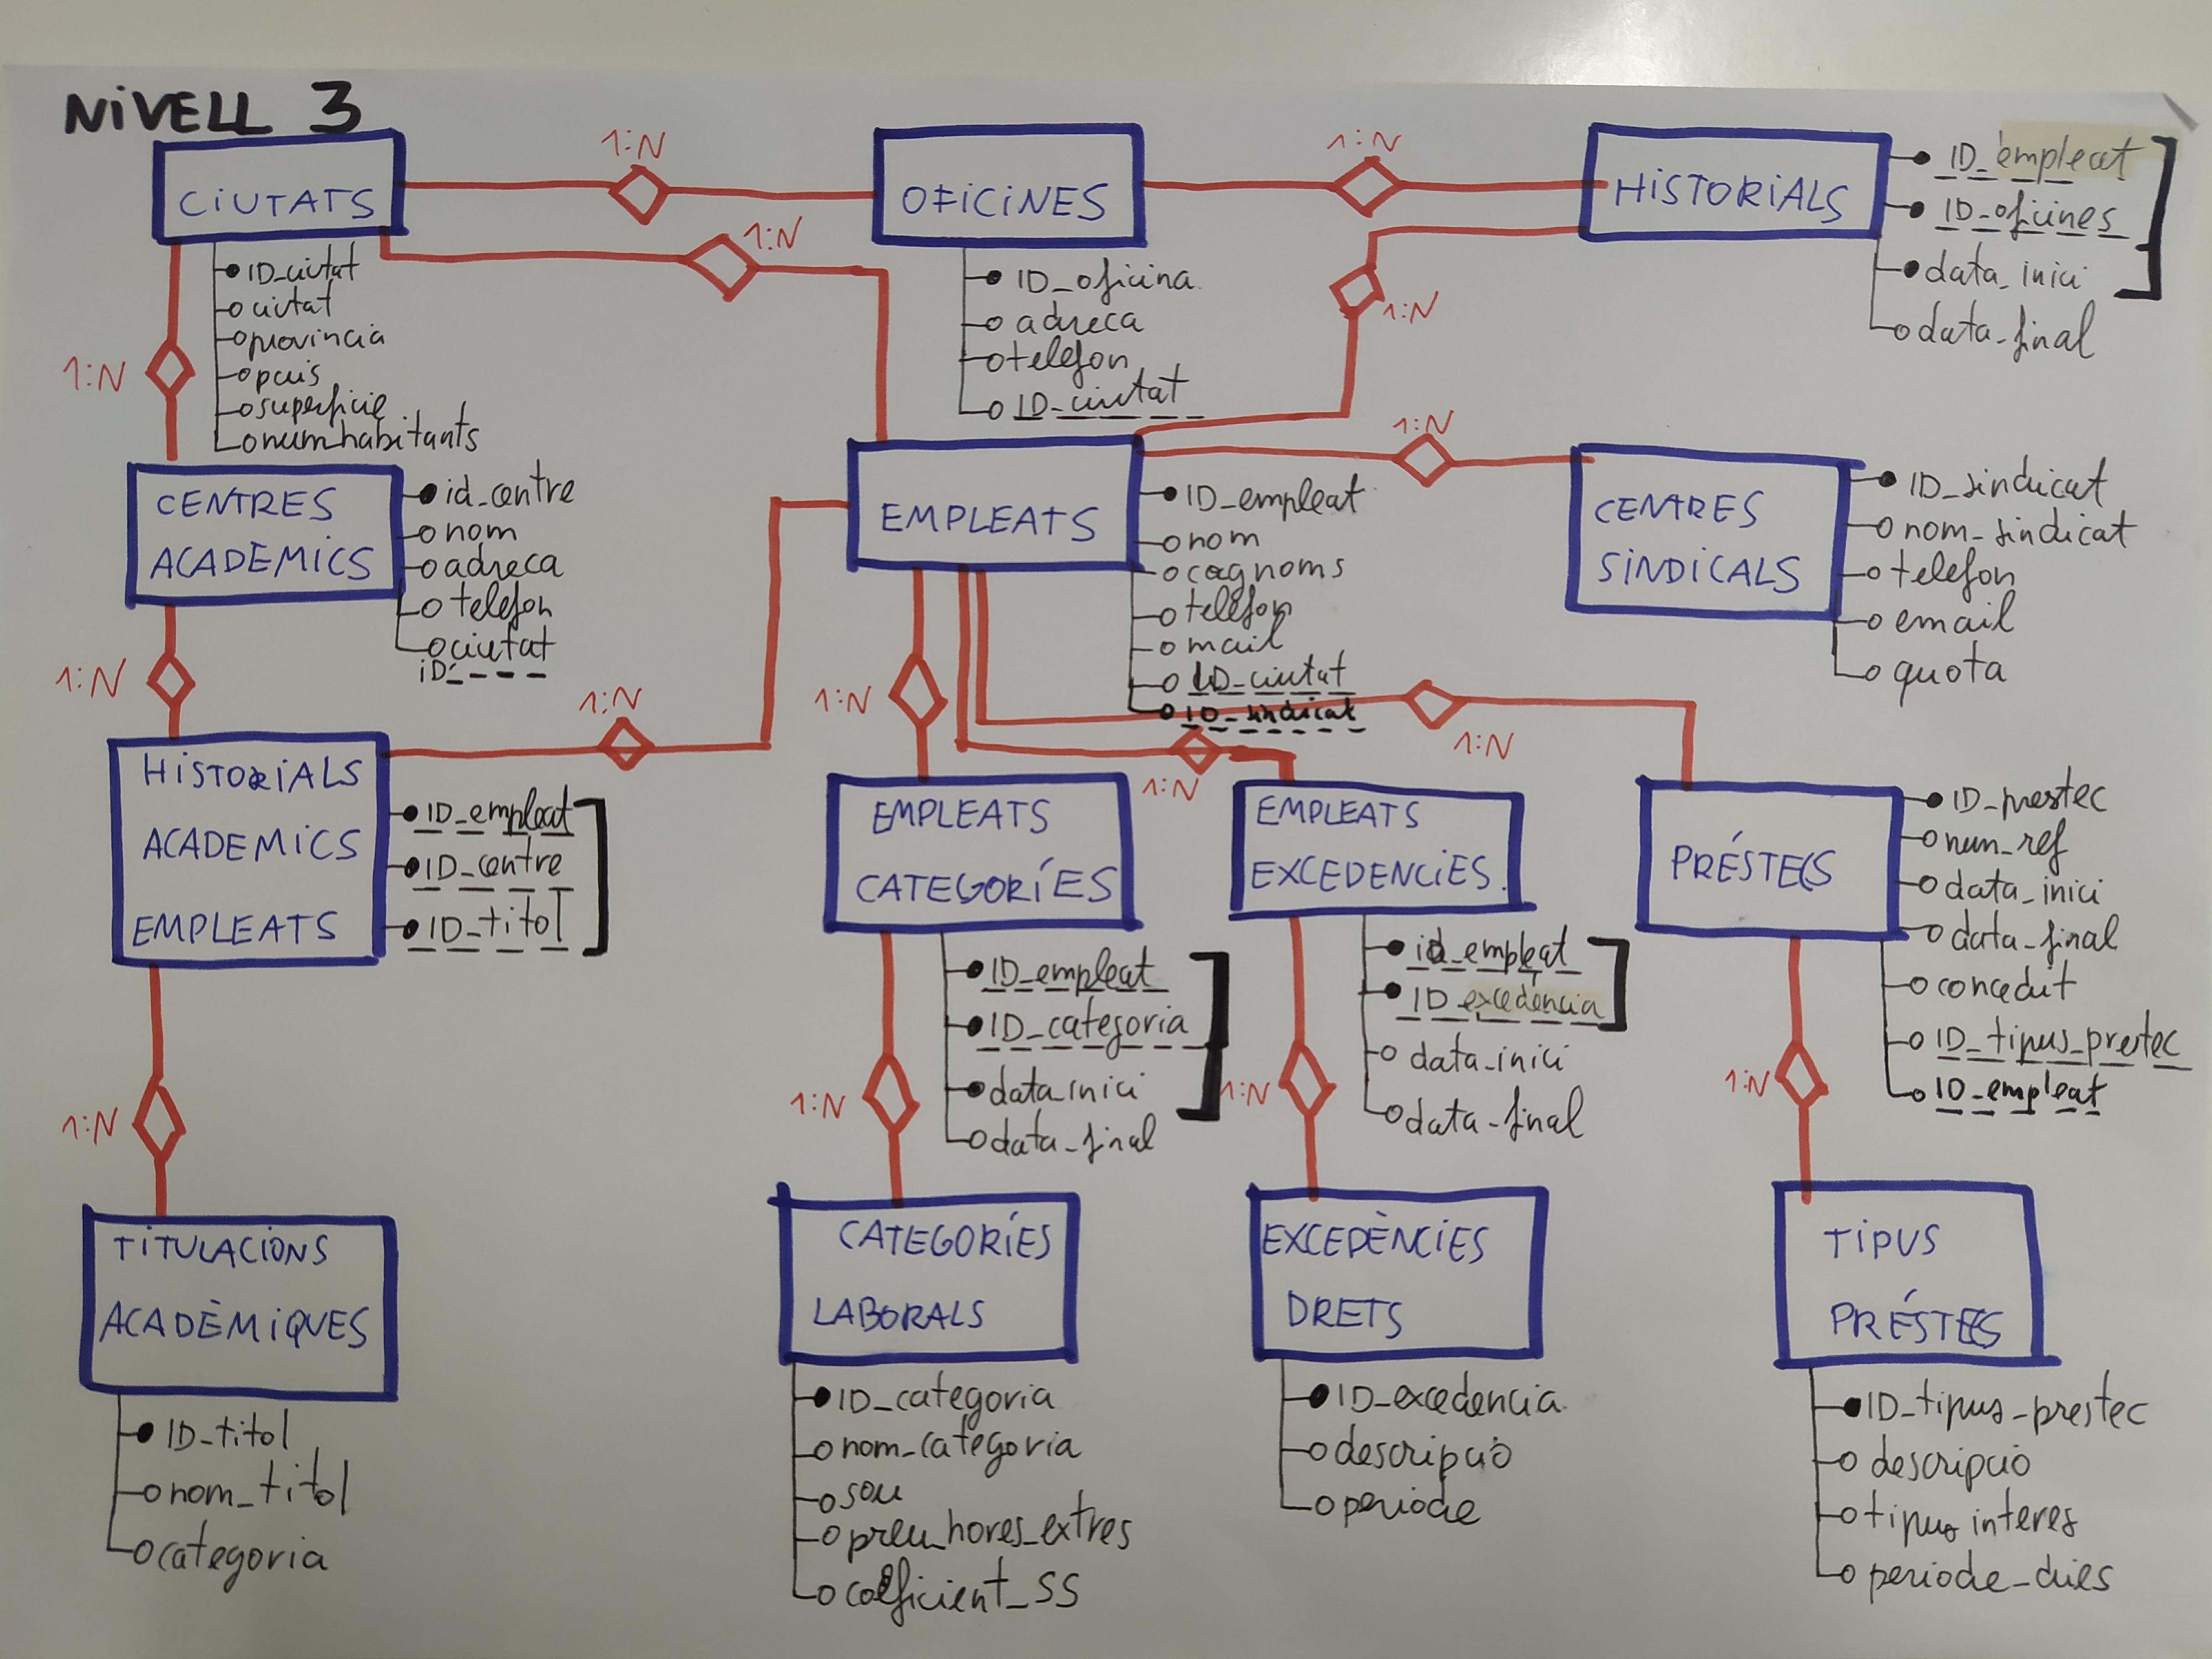 NiVELL 3
CiUTATS
1:N
OFiCiNES
1:N
HiSTORiALS
ID_empleat
ID_oficines
data_inici
data_final
1:N
ID_ciutat
ciutat
provincia
pais
superficie
num_habitants
1:N
ID_oficina
adreca
telefon
ID_ciutat
1:N
CENTRES
ACADEMiCS
id_centre
nom
adreca
telefon
ciutat
iD_
EMPLEATS
ID_empleat
nom
cognoms
telefon
mail
ID_ciutat
ID_sindicat
1:N
CENTRES
SiNDiCALS
ID_sindicat
nom_sindicat
telefon
email
quota
1:N
1:N
1:N
1:N
1:N
HiSTORiALS
ACADEMiCS
EMPLEATS
ID_empleat
ID_centre
ID_titol
EMPLEATS
CATEGORÍES
ID_empleat
ID_categoria
data_inici
data_final
EMPLEATS
EXCEDENCiES
id_empleat
ID_excedència
data_inici
data_final
PRÉSTECS
ID_prestec
num_ref
data_inici
data_final
concedit
ID_tipus_prestec
ID_empleat
1:N
1:N
1:N
1:N
TiTULACiONS
ACADÈMiQUES
ID_titol
nom_titol
categoria
CATEGORÍES
LABORALS
ID_categoria
nom_categoria
sou
preu_hores_extres
coeficient_SS
EXCEDÈNCiES
DRETS
ID_excedencia
descripció
periode
TiPUS
PRÉSTECS
ID_tipus_prestec
descripció
tipus interes
periode_dies